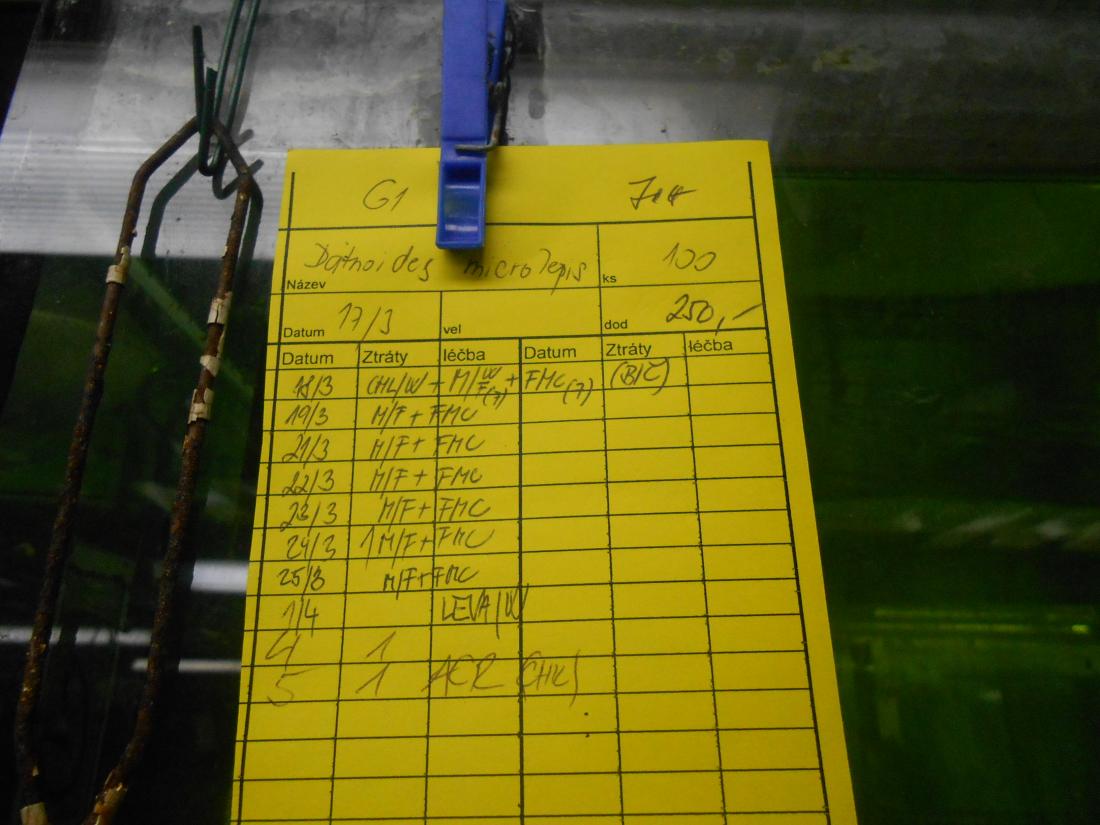 G1
Datnoides microlepis 100
Název ks
17/3 250,-
Datum vel dod
Datum Ztráty léčba Datum Ztráty léčba
18/3 CHL/W + M/W/F(7) + FMC(7) (BIČ)
19/3 M/F + FMC
21/3 M/F + FMC
22/3 M/F + FMC
23/3 M/F + FMC
24/3 1 M/F + FMC
25/3 M/F + FMC
1/4 LEVA/W
4 1
5 1 ACR